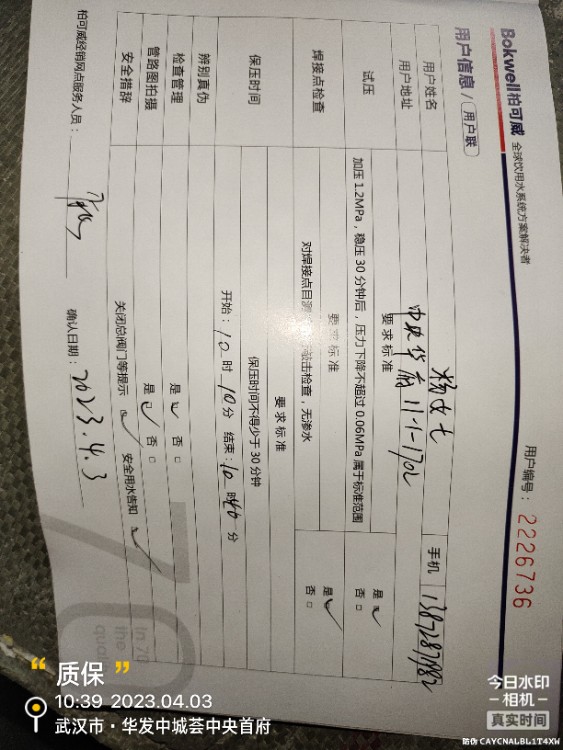 Bokwell柏可威 全球饮用水系统方案解决者
用户编号：2226736
用户信息 / 用户联
用户姓名 杨女士 手机
用户地址 中央华府 11-1-1702
要求标准
试压 加压 1.2MPa，稳压 30 分钟后，压力下降不超过 0.06MPa 属于标准范围 是 否
要求标准
焊接点检查 对焊接点目测 击检查，无渗水 是 否
要求标准
保压时间 保压时间不得少于 30 分钟
开始：10 时 10 分 结束：10 时 40 分
辨别真伪
检查管理 是 否
管路图拍摄 是 否
安全措辞 关闭总阀门等提示 安全用水告知
柏可威经销网点服务人员： 确认日期：2023.4.3
70
In 70
the
qual
“质保”
10:39 2023.04.03
武汉市·华发中城荟中央首府
今日水印
相机
真实时间
防伪 CAYCNALBL1T4XW